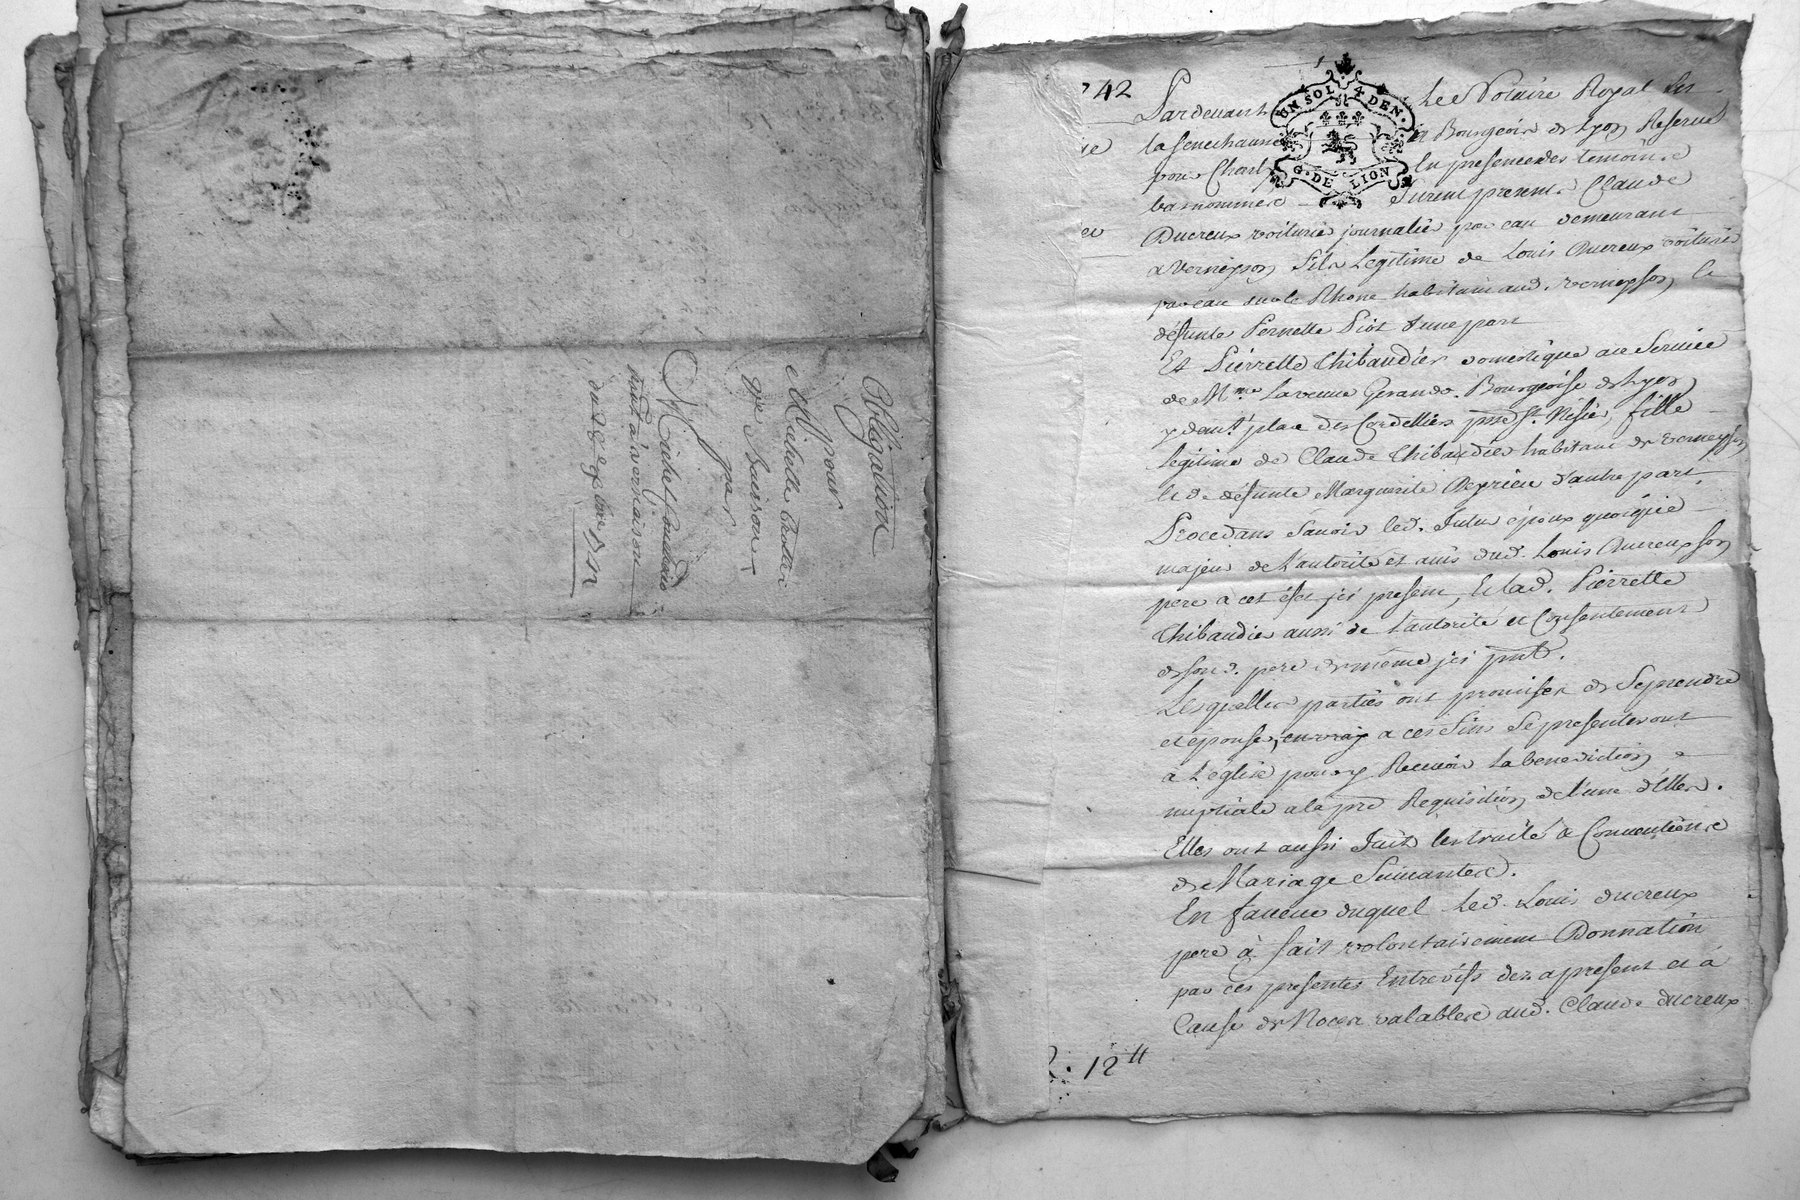 Obligation
pour
Michelle
par
du 8e 7bre 1742
742
Pardevant Le Notaire Royal En
UN SOL 4 DEN.
G. DE LION
la senechaussé Bourgeois de Lyon Reservé
pour Charly En presence des temoins
bas nommés furent presens Claude
Ducreux voiturié journalié par eau demeurant
a Vernayson fils Legitime de Louis Ducreux voiturié
par eau sur le Rhone habitant aud. vernayson, &
défunte Pernette Piot d'une part
Et Pierrette Thibaudier domestique au Service
de Mme. La veuve Gerando Bourgeoise de Lyon
y demt. place des Cordelliers psse St. Nisié, fille
legitime de Claude Thibaudier habitant de vernayson
& de défunte Marguerite Reyrieu d'autre part,
Procedans Savoir led. futur époux quoiquie
majeur de l'autorité et avis dud. Louis Ducreux son
pere a cet éfet jci present, Et lad. Pierrette
Thibaudier aussi de l'autorité et Consentement
de sond. pere de même jci pnt.
Lesquelles parties ont promises de Se prendre
et épouser, en vray a ces fins Se presenteront
à L'eglise pour y Recevoir La benediction
nuptiale a la pre Requisition de l'une d'Elles.
Elles ont aussi fait les traité & Conventions
de Mariage Suivantes.
En faveur duquel Led. Louis ducreux
pere à fait volontairement Donnation
par ces presentes Entrevifs dez apresent et à
Cause de Noces valables aud. Claude ducreux
R. 12 ₶